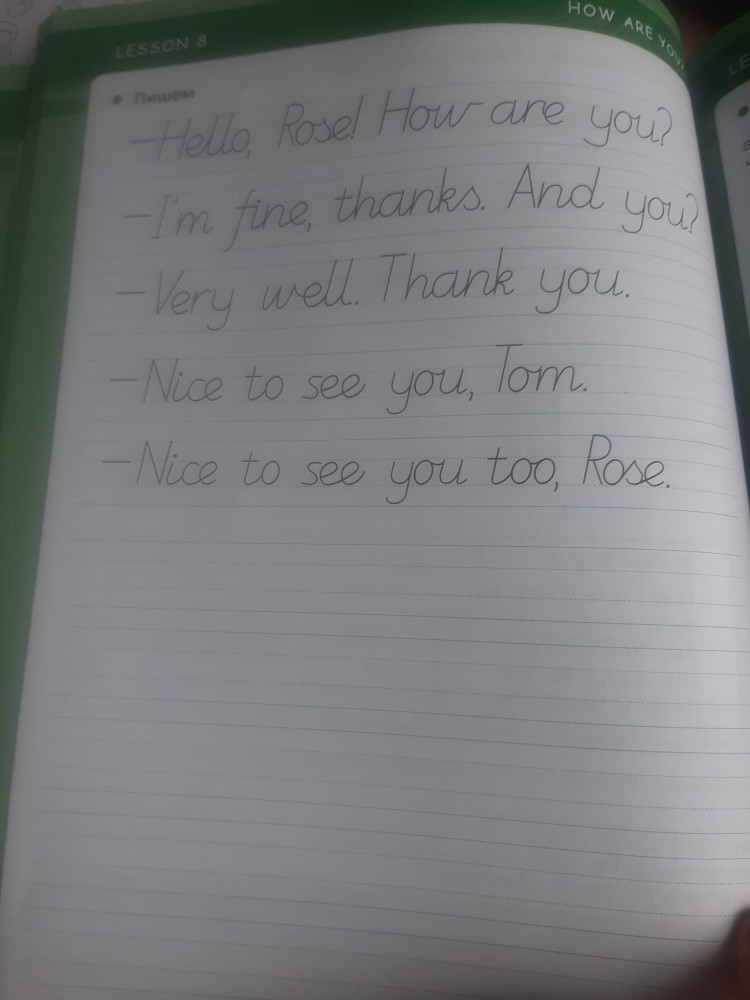 HOW ARE YOU?
LESSON 8
• Пишем
—Hello, Rose! How are you?
—I'm fine, thanks. And you?
—Very well. Thank you.
—Nice to see you, Tom.
—Nice to see you too, Rose.